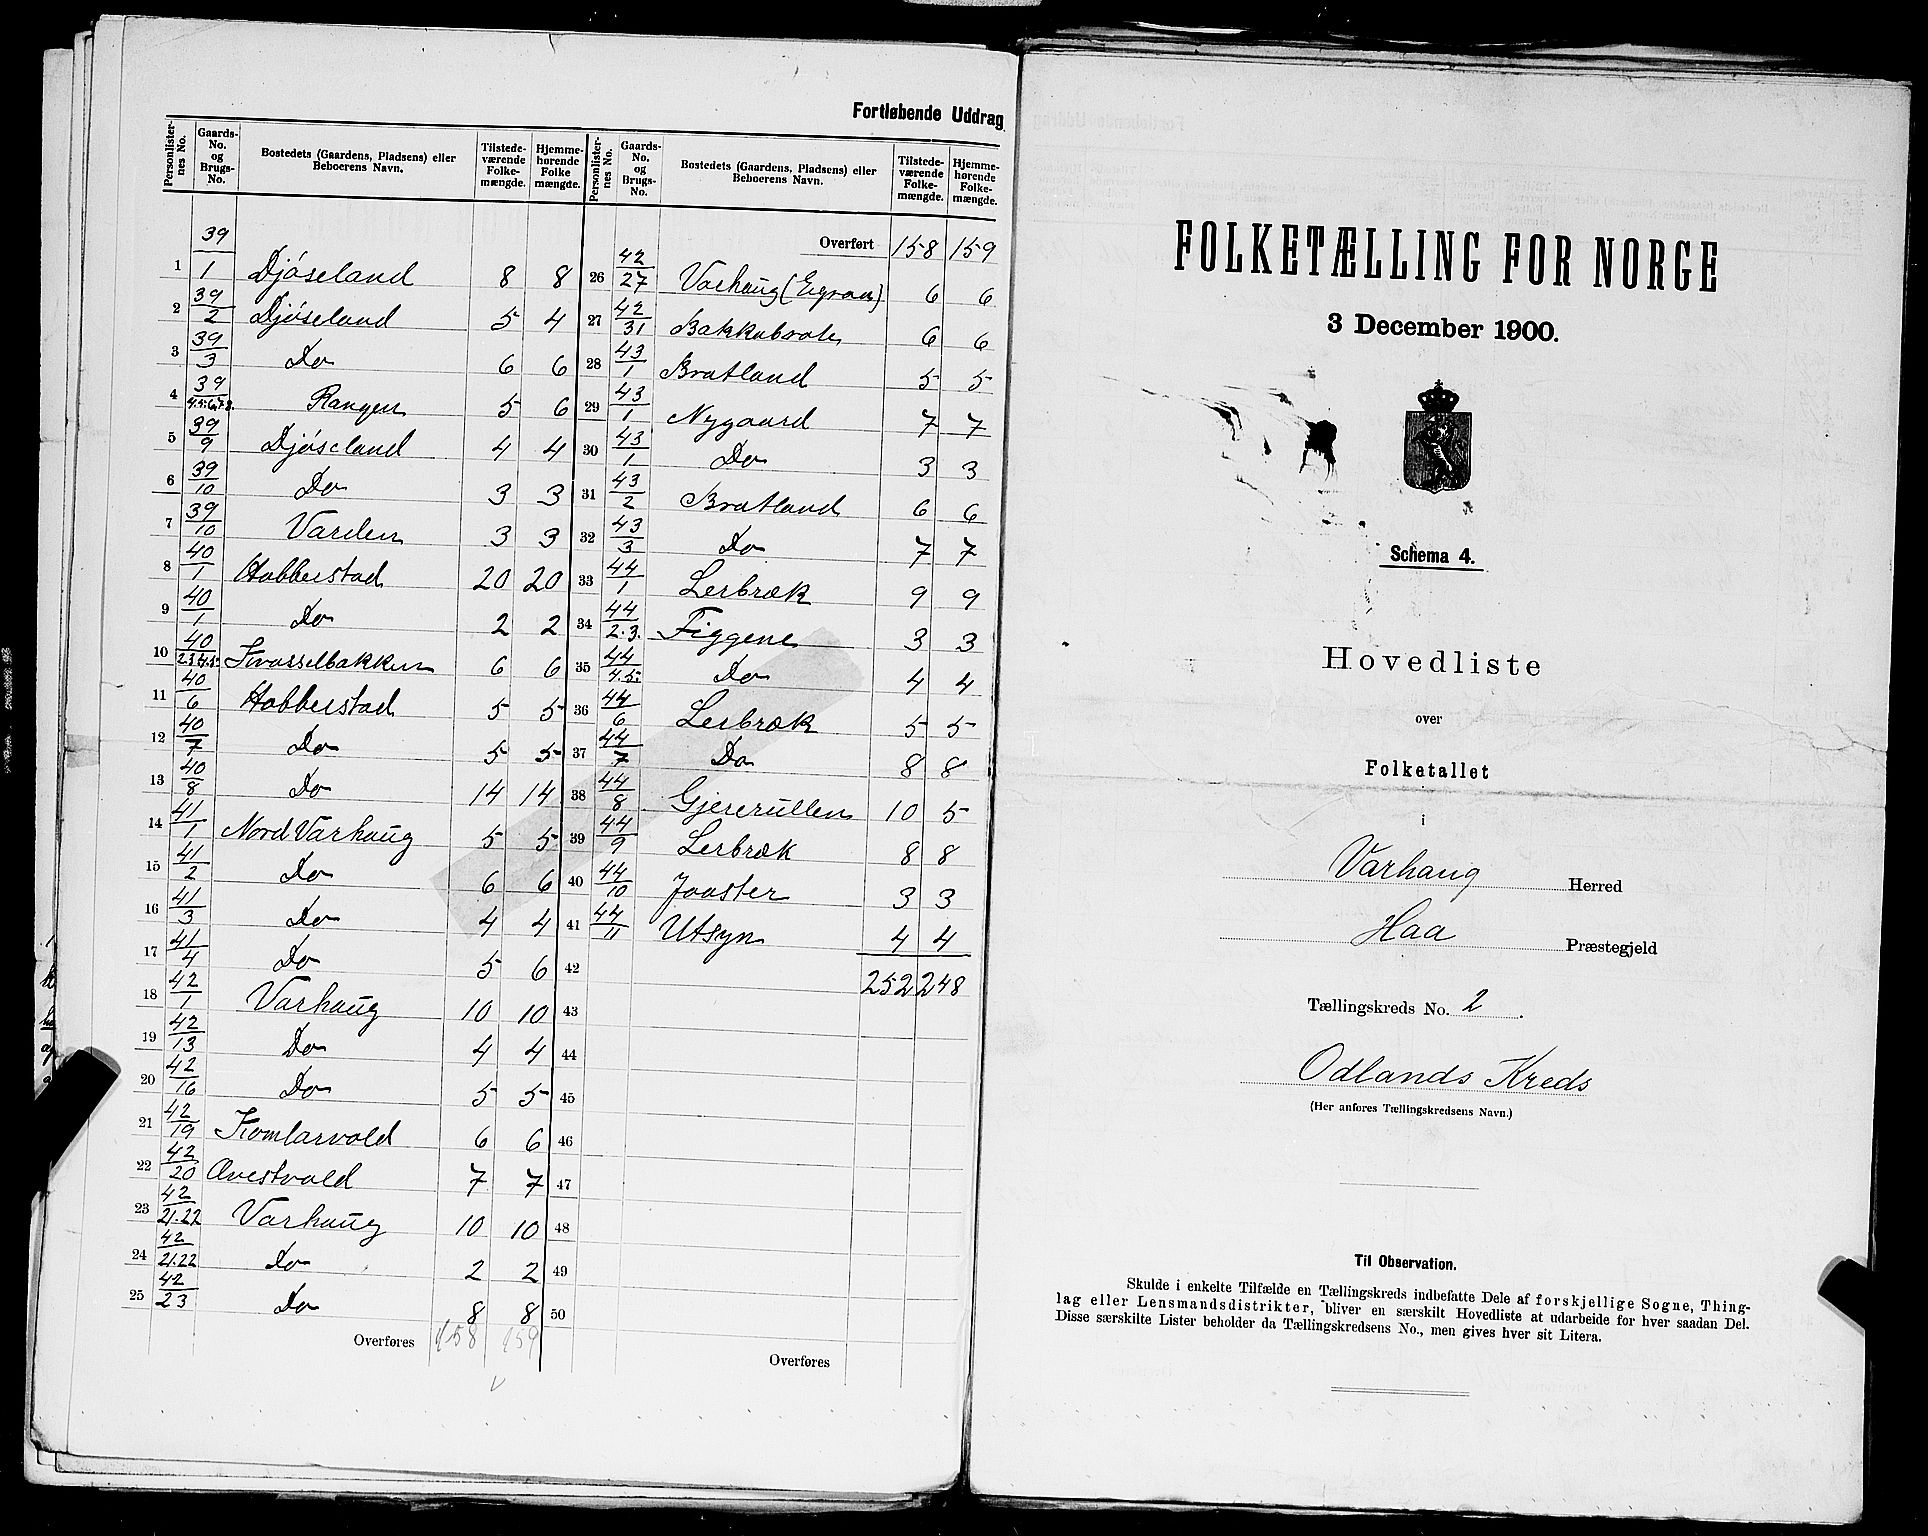 Fortløbende Uddrag
Personlister-nes No. | Gaards-No. og Brugs-No. | Bostedets (Gaardens, Pladsens) eller Beboerens Navn. | Tilstede-værende Folke-mængde. | Hjemme-hørende Folke mængde.
1 39/1 Djøseland 8 8
2 39/2 Djøseland 5 4
3 39/3 Do 6 6
4 39/4.5.6.7.8. Rangen 5 6
5 39/9 Djøseland 4 4
6 39/10 Do 3 3
7 39/10 Varden 3 3
8 40/1 Hobberstad 20 20
9 40/1 Do 2 2
10 40/2.3.4.5. Kvasselbakken 6 6
11 40/6 Hobberstad 5 5
12 40/7 Do 5 5
13 40/8 Do 14 14
14 41/1 Nord Varhaug 5 5
15 41/2 Do 6 6
16 41/3 Do 4 4
17 41/4 Do 5 6
18 42/1 Varhaug 10 10
19 42/13 Do 4 4
20 42/16 Do 5 5
21 42/19 Homlarvold 6 6
22 42/20 Avestvold 7 7
23 42/21.22 Varhaug 10 10
24 42/21.22 Do 2 2
25 42/23 Do 8 8
Overføres 158 159
Personlister-nes No. | Gaards-No. og Brugs-No. | Bostedets (Gaardens, Pladsens) eller Beboerens Navn. | Tilstede-værende Folke-mængde. | Hjemme-hørende Folke-mængde.
Overført 158 159
26 42/27 Varhaug (Eigraa) 6 6
27 42/31 Bakkabrote 6 6
28 43/1 Bratland 5 5
29 43/1 Nygaard 7 7
30 43/1 Do 3 3
31 43/2 Bratland 6 6
32 43/3 Do 7 7
33 44/1 Lerbræk 9 9
34 44/2.3. Figgene 3 3
35 44/4.5. Do 4 4
36 44/6 Lerbræk 5 5
37 44/7 Do 8 8
38 44/8 Gjererullen 10 5
39 44/9 Lerbræk 8 8
40 44/10 Jaaster 3 3
41 44/11 Utsyn 4 4
42 252 248
43
44
45
46
47
48
49
50
Overføres
FOLKETÆLLING FOR NORGE
3 December 1900.
Schema 4.
Hovedliste
over
Folketallet
i
Varhaug Herred
Haa Præstegjeld
Tællingskreds No. 2.
Odlands Kreds
(Her anføres Tællingskredsens Navn.)
Til Observation.
Skulde i enkelte Tilfælde en Tællingskreds indbefatte Dele af forskjellige Sogne, Thing-
lag eller Lensmandsdistrikter, bliver en særskilt Hovedliste at udarbeide for hver saadan Del.
Disse særskilte Lister beholder da Tællingskredsens No., men gives hver sit Litera.